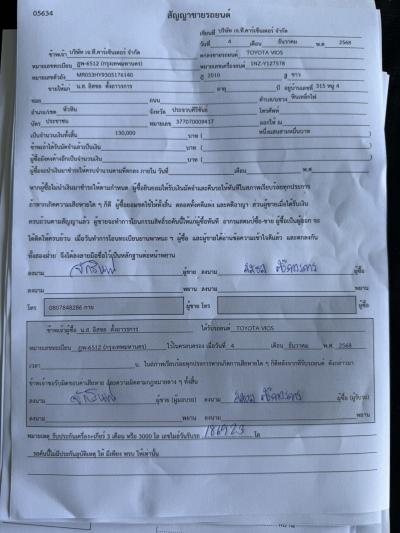 05634
สัญญาขายรถยนต์
เขียนที่ บริษัท เจ.ที.คาร์เซ็นเตอร์ จำกัด
วันที่ 4 เดือน ธันวาคม พ.ศ. 2568
ข้าพเจ้า บริษัท เจ.ที.คาร์เซ็นเตอร์ จำกัด ตกลงขายรถยนต์ TOYOTA VIOS
หมายเลขทะเบียน ฎพ-6512 (กรุงเทพมหานคร) หมายเลขเครื่องยนต์ 1NZ-Y127578
หมายเลขตัวถัง MR053HY9305176140 ปี 2010 สี ขาว
ขายให้แก่ น.ส. อิสซอ ตั้งถาวรการ อายุ ปี อยู่บ้านเลขที่ 315 หมู่ 4
ซอย ถนน ตำบล/แขวง หินเหล็กไฟ
อำเภอ/เขต หัวหิน จังหวัด ประจวบคีรีขันธ์ โทรศัพท์
บัตร ประชาชน หมายเลข ออกให้ ณ
เป็นจำนวนเงินทั้งสิ้น 130,000 บาท ( หนึ่งแสนสามหมื่นบาท )
ข้าพเจ้าได้รับมัดจำแล้วเป็นเงิน บาท ( )
ผู้ซื้อยังคงค้างอีกเป็นจำนวนเงิน บาท ( )
ผู้ซื้อจะนำเงินมาชำระให้ครบจำนวนตามที่ตกลง ภายใน วันที่ เดือน พ.ศ.
หากผู้ซื้อไม่นำเงินมาชำระตามกำหนด ผู้ซื้อยินยอมให้ริบเงินมัดจำและคืนรถให้ทันทีในสภาพเรียบร้อยทุกประการ
ถ้าหากเกิดความเสียหายใด ๆ ก็ดี ผู้ซื้อยอมชดใช้ให้ทั้งสิ้น ตลอดทั้งคดีแพ่ง และคดีอาญา ส่วนผู้ขายเมื่อได้รับเงิน
ครบถ้วนตามสัญญาแล้ว ผู้ขายจะทำการโอนกรรมสิทธิ์รถคันนี้ให้แก่ผู้ซื้อทันที
ทั้งสองฝ่าย จึงได้ลงลายมือชื่อไว้เป็นหลักฐานต่อหน้าพยาน
ลงนาม ผู้ขาย ลงนาม ผู้ซื้อ
ลงนาม พยาน ลงนาม พยาน
โทร 0807848286 กาย ผู้ขาย โทร ผู้ซื้อ
ข้าพเจ้าผู้ซื้อ น.ส. อิสซอ ตั้งถาวรการ ได้รับรถยนต์ TOYOTA VIOS
หมายเลขทะเบียน ฎพ-6512 (กรุงเทพมหานคร) ไว้ในครอบครอง เมื่อวันที่ 4 เดือน ธันวาคม พ.ศ. 2568
เวลา น. ในสภาพเรียบร้อยทุกประการหากเกิดการเสียหายใด ๆ ก็ดีหลังจากที่รับรถยนต์ ดังกล่าวมา
ข้าพเจ้าขอรับผิดชอบค่าเสียหาย และความผิดตามกฎหมายต่าง ๆ ทั้งสิ้น
ลงนาม ผู้ขาย (ผู้มอบรถ) ลงนาม ผู้ซื้อ (ผู้รับรถ)
ลงนาม พยาน ลงนาม พยาน
หมายเหตุ รับประกันเครื่อง+เกียร์ 3 เดือน หรือ 3000 โล เลขไมล์วันรับรถ 186923 โล
รถคันนี้ไม่มีประกันอุบัติเหตุ ให้ มีเพียง พรบ ให้เท่านั้น